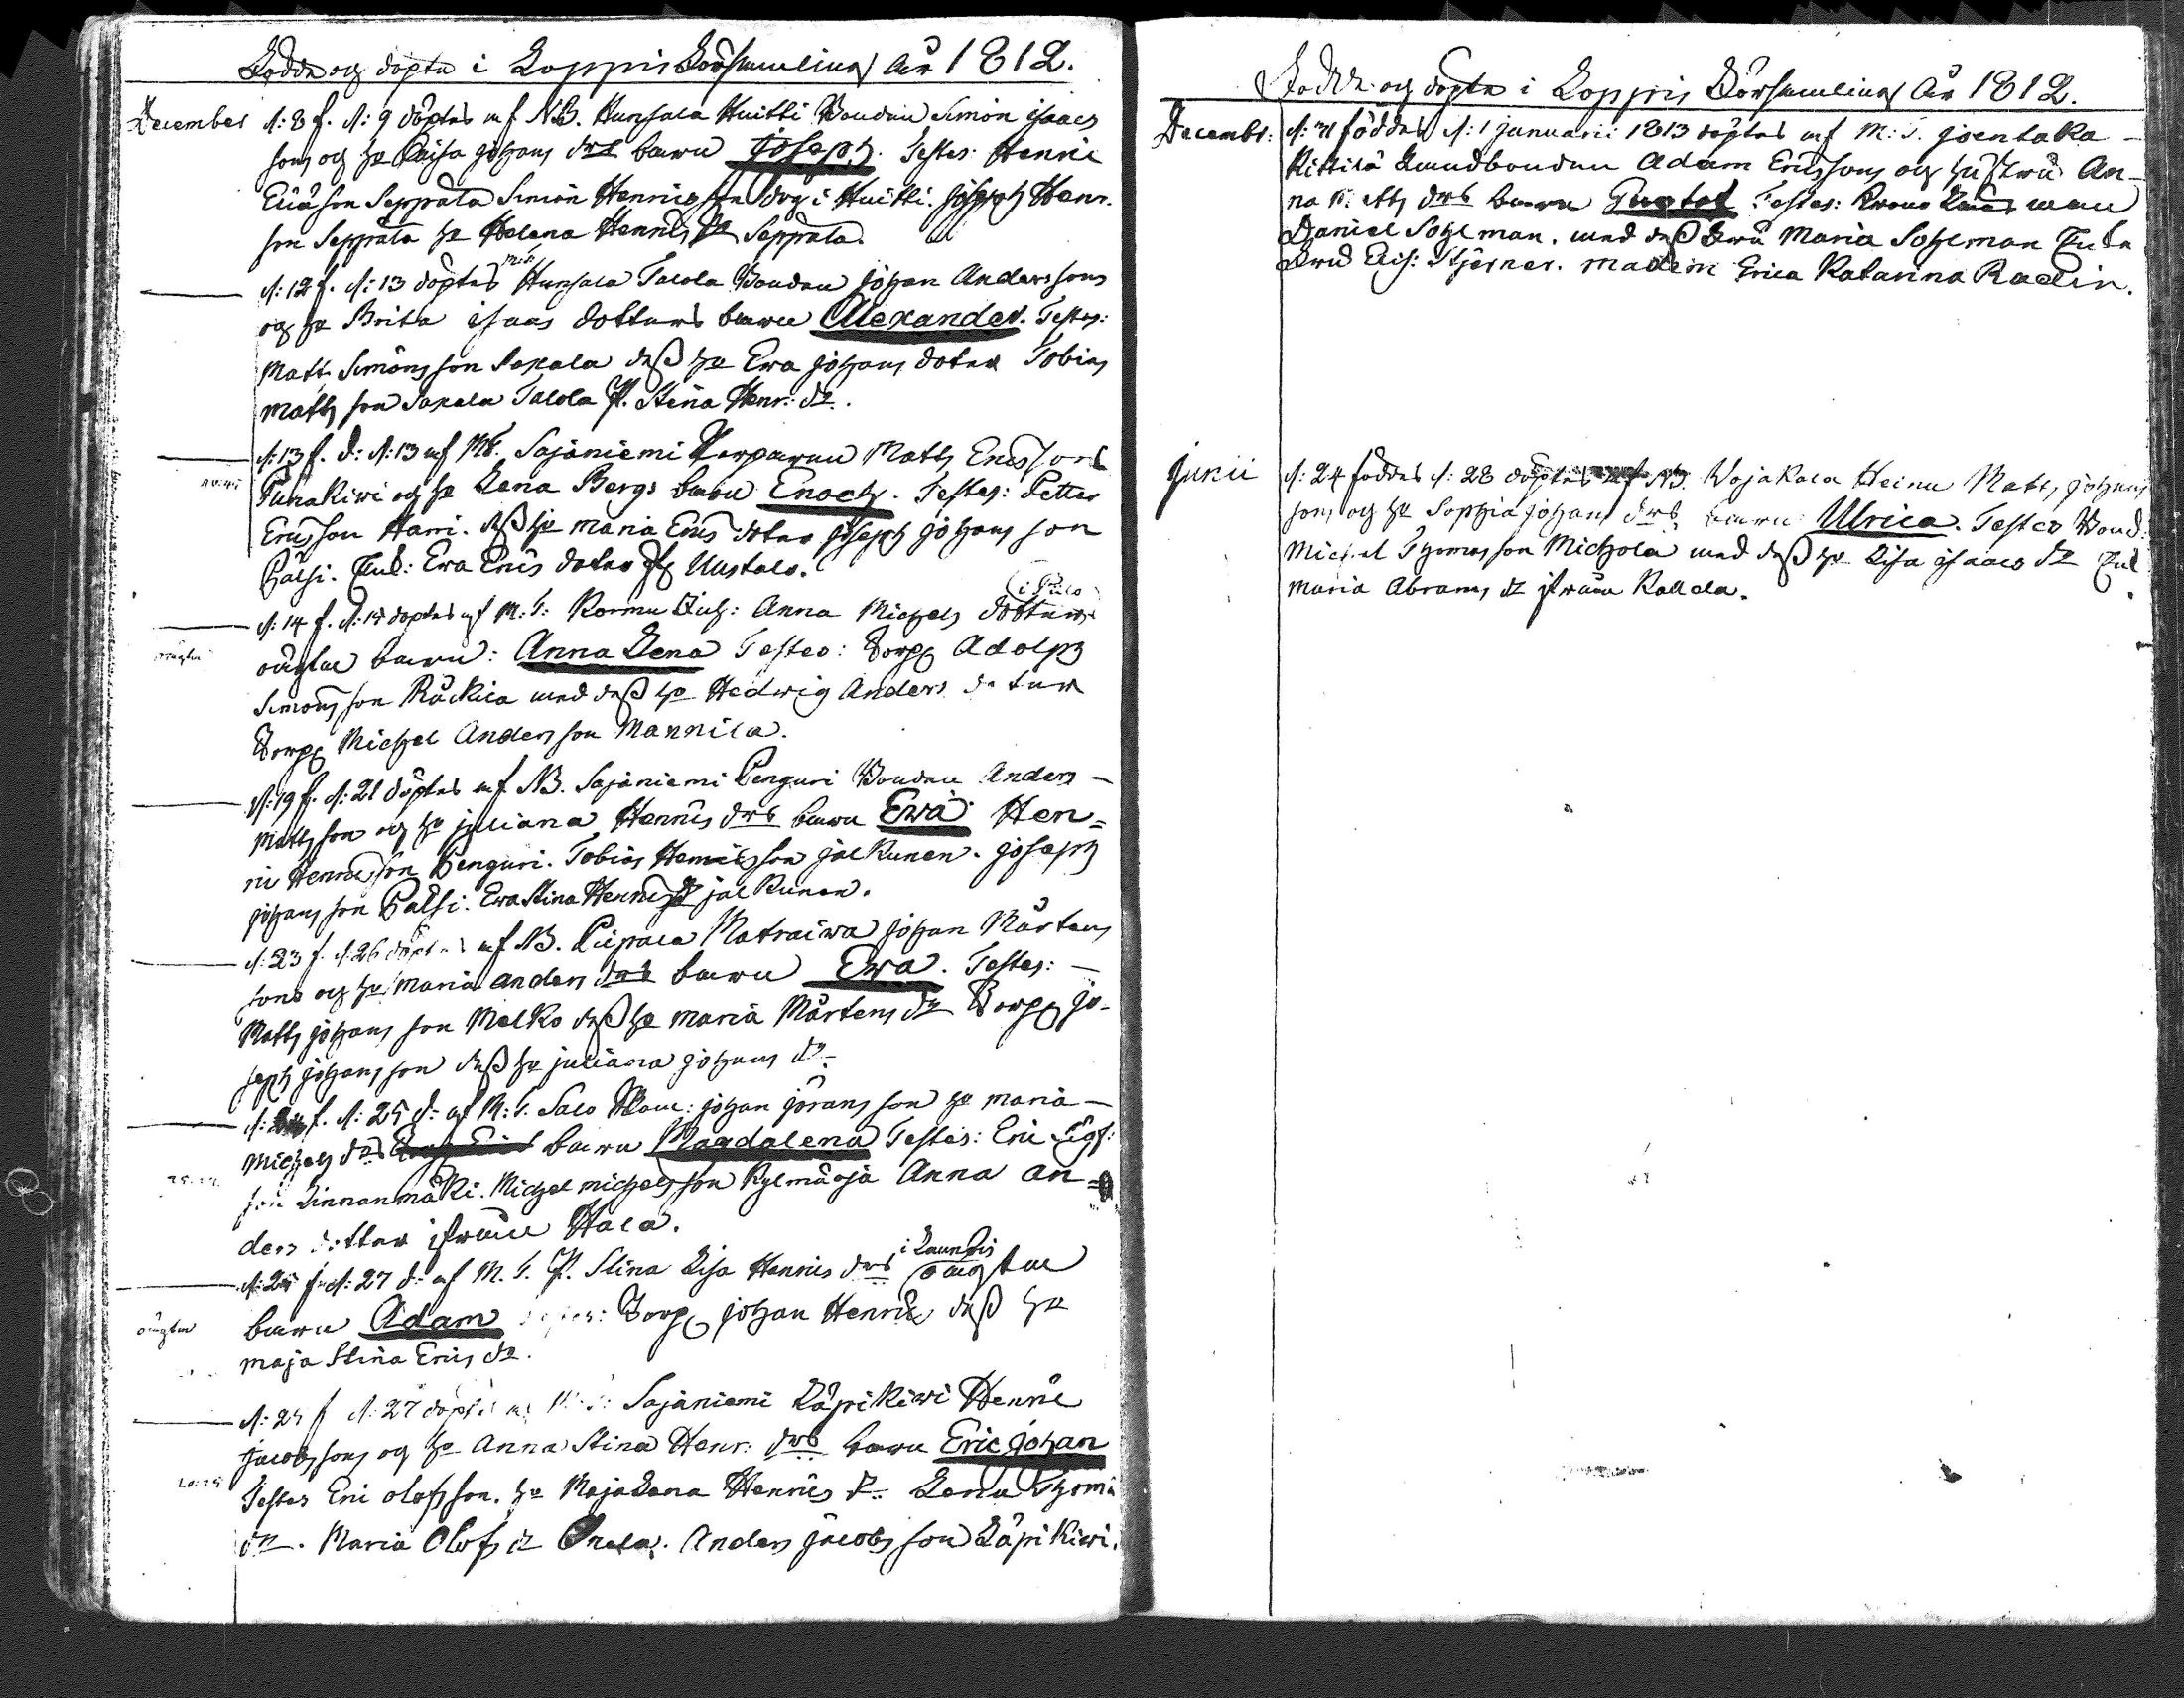 Födde och döpte i Loppis Församling År 1812.
December d: 8 f. d: 9 döptes af NB. Hunsala Huitti Bonden Simon Isacs
sons och hu Caisa Johans drs barn Joseph. Testes: Henric
Ericsson Seppälä Simon Henricsson Skog i Huitti. Joseph Henr.
son Seppälä hu Helena Henrics dr Seppälä.
d: 12 f. d: 13 döptes M:T. Hunsala Talola Bonden Johan Anderssons
och hu Brita Isaas dotters barn Alexander. Testes:
Matts Simonsson Saxala dess hu Ewa Johans doter Tobias
Mattsson Saxala Talola P. Stina Henr: dr.
d: 13 f. d: d: 13 af MT. Sajaniemi Torparen Matts Ericssons
Punakiwi och hu Lena Bergs barn Enoch. Testes: Petter
Ericsson Harri. dess hu Maria Erics doter Joseph Johans son
Pälsi. Ewa Erics doter fr Uustalo.
d: 14 f. d: 15 döptes af M:T: Kormu Anna Michels dotters (i Pilo)
oägta barn: Anna Lena Testes: Torp Adolph
Simonsson Räckilä med dess hu Hedwig Anders doter
oägta
Torp Michel Andersson Mannila.
d: 19 f. d: 21 döptes af NB. Sajaniemi Penguri Bonden Anders
Mattsson och hu Juliana Henrics drs barn Ewa Hen=
ric Henricsson Penguri. Tobias Henricsson Jalkunen. Joseph
Johansson Pälsi. Ewa Stina Henrics dr Jalkunen.
d: 23 f. d: 26 döptes af NB. Pilpala Matraiwa Johan Mårtens
sons och hu Maria Anders drs barn Ewa. Testes:
Matts Johans son Melko dess hu Maria Mårtens dr Torp Jo-
seph Johansson dess hu Juliana Johans dr.
d: 24 f. d: 25 d: af M:T. Salo Johan Jörans son hu Maria
Michels drs barn Magdalena Testes: Eric
son Linnanmäki. Michel Michelsson Kylmäoja Anna An=
ders dotter ifrån Hala.
d: 25 f. d: 27 d: af M.T. P. Stina Lisa Henrics drs i Launois oägta
oägta
barn Adam Testes: Torp Johan Henric dess hu
Maja Stina Erics dr.
d: 25 f d: 27 döptes af M:T: Sajaniemi Läpikiwi Henric
Jacobssons och hu Anna Stina Henr: drs barn Eric Johan
Testes Eric Olofsson. hu Maja Lena Henrics dr. Lena Thoma
dr. Maria Olofs dr Onela. Anders Jacobsson Läpikiwi.
Födde och döpte i Loppis Församling År 1812.
Decembr: d: 31 föddes d: 1 Januarii 1813 döptes af M:T. Joentaka
Kittilä Lundbonden Adam Ericssons och hustru An-
na Matts drs barn Gustaf Testes: Krono Länsman
Daniel Sohlman. med dess Fru Maria Sohlman Enke
Fru Elis: Stjerner. Madem Erica Katarina Radin.
Junii d: 24 föddes d: 28 döptes af NB. Wojakala Heinu Matts Johans
sons och hu Sophia Johans drs barn Ulrica. Testes Bond:
Michel Thomasson Michola med dess hu Lisa Isaacs dr
Maria Abrams dr ifrån Kallela.